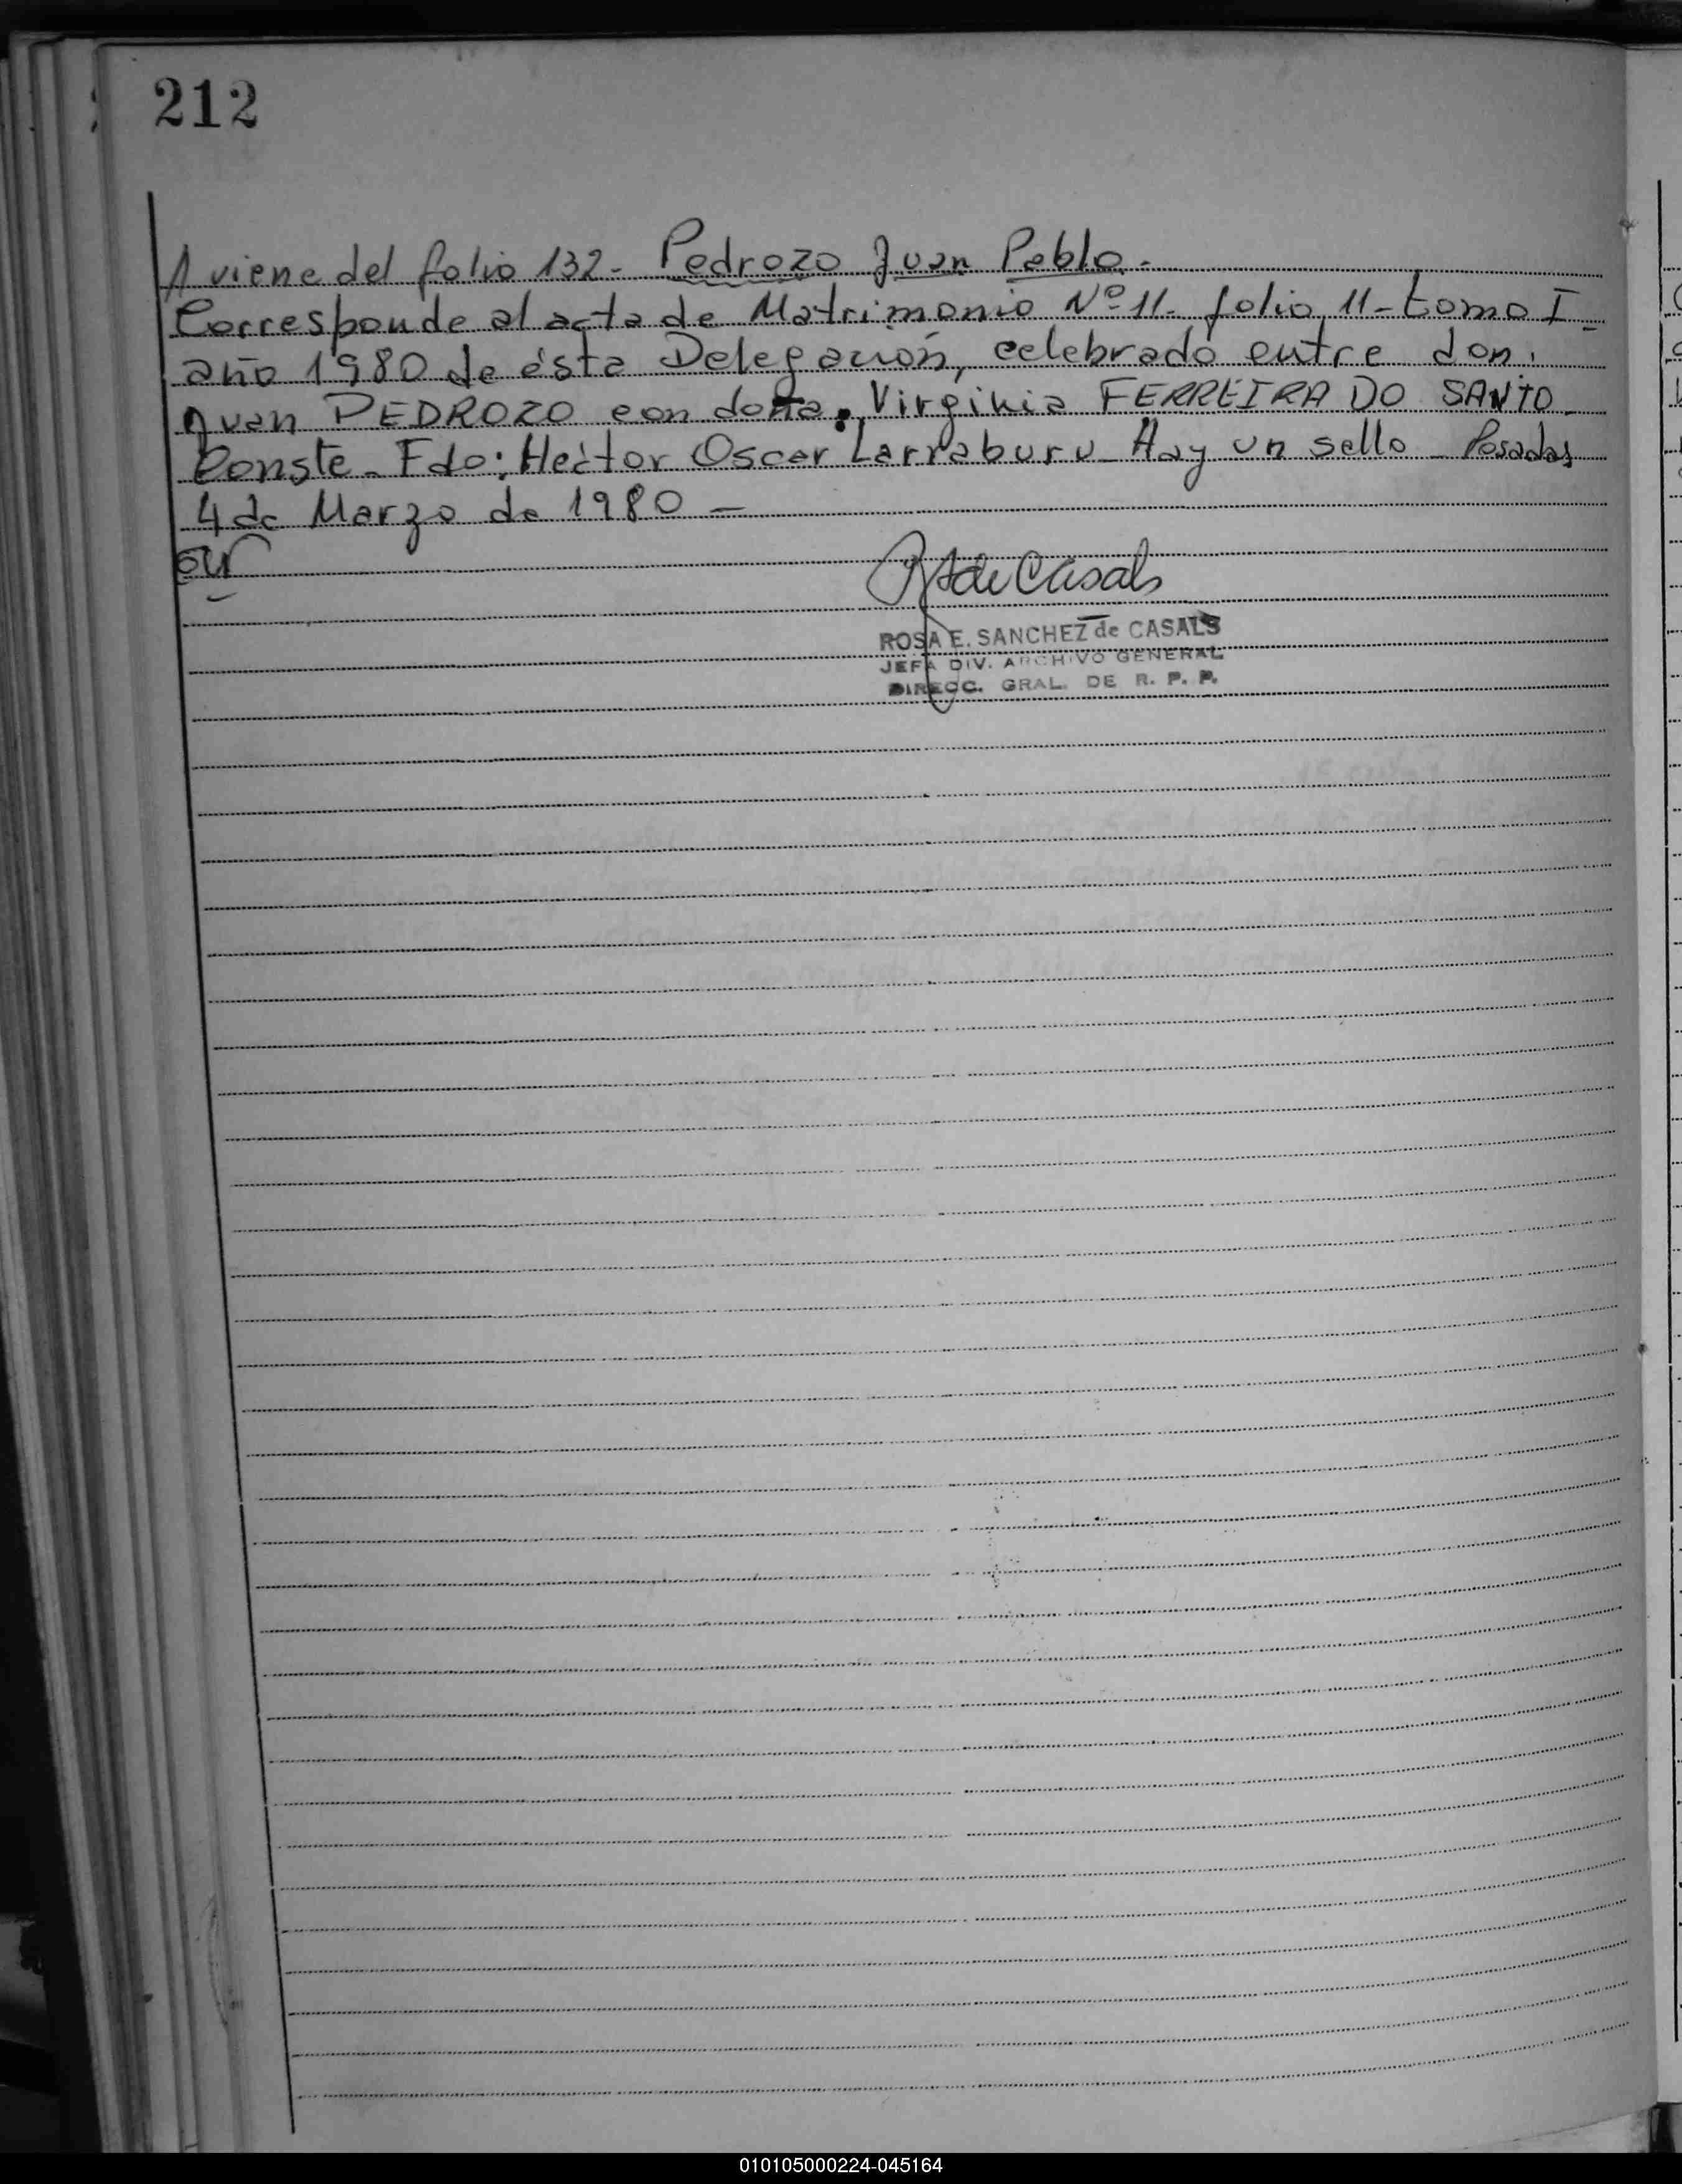 212
A viene del folio 132- Pedrozo Juan Pablo.-
Corresponde al acta de Matrimonio Nº 11- folio 11- tomo I-
año 1980 de ésta Delegación, celebrado entre don.
Juan PEDROZO con doña. Virginia FERREIRA DO SANTO-
Conste- Fdo: Hector Oscar Larraburu- Hay un sello- Posadas
4 de Marzo de 1980 -
de Casals
ROSA E. SANCHEZ de CASALS
JEFA DIV. ARCHIVO GENERAL
DIRECC. GRAL. DE R. P. P.
010105000224-045164